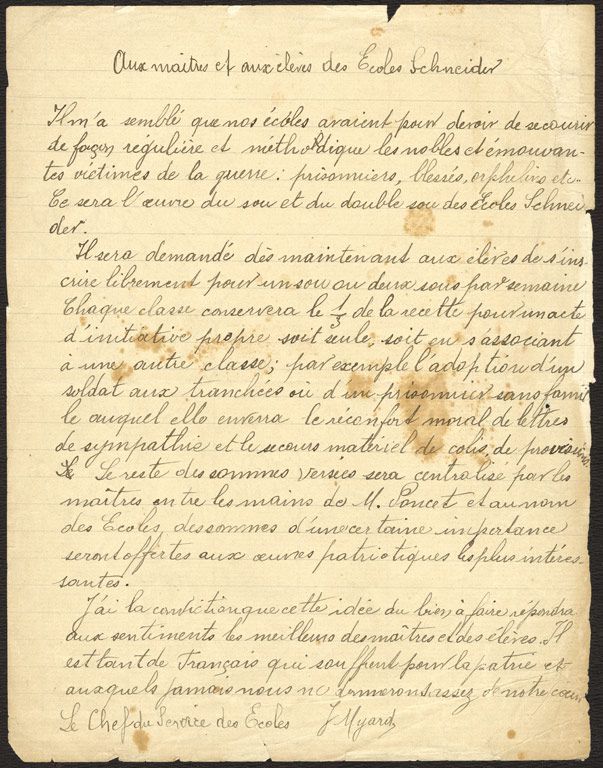 Aux maîtres et aux élèves des Ecoles Schneider
Il m'a semblé que nos écoles avaient pour devoir de secourir
de façon régulière et méthodique les nobles et émouvan-
tes victimes de la guerre : prisonniers, blessés, orphelins etc.
Ce sera l'œuvre du sou et du double sou des Ecoles Schnei
der.
Il sera demandé dès maintenant aux élèves de s'ins-
crire librement pour un sou ou deux sous par semaine
Chaque classe conservera le 1/5 de la recette pour un acte
d'initiative propre soit seule, soit en s'associant
à une autre classe; par exemple l'adoption d'un
soldat aux tranchées où d'un prisonnier sans famil
le auquel elle enverra le réconfort moral de lettres
de sympathie et le secours matériel de colis, de provisions
Le reste des sommes versées sera centralisé par les
maîtres entre les mains de M. Poncet et au nom
des Ecoles, des sommes d'une certaine importance
seront offertes aux œuvres patriotiques les plus intéres-
santes.
J'ai la conviction que cette idée du bien à faire répondra
aux sentiments les meilleurs des maîtres et des élèves. Il
est tant de Français qui souffrent pour la patrie et
auxquels jamais nous ne donnerons assez de notre cœur
Le Chef du Service des Ecoles J Myard